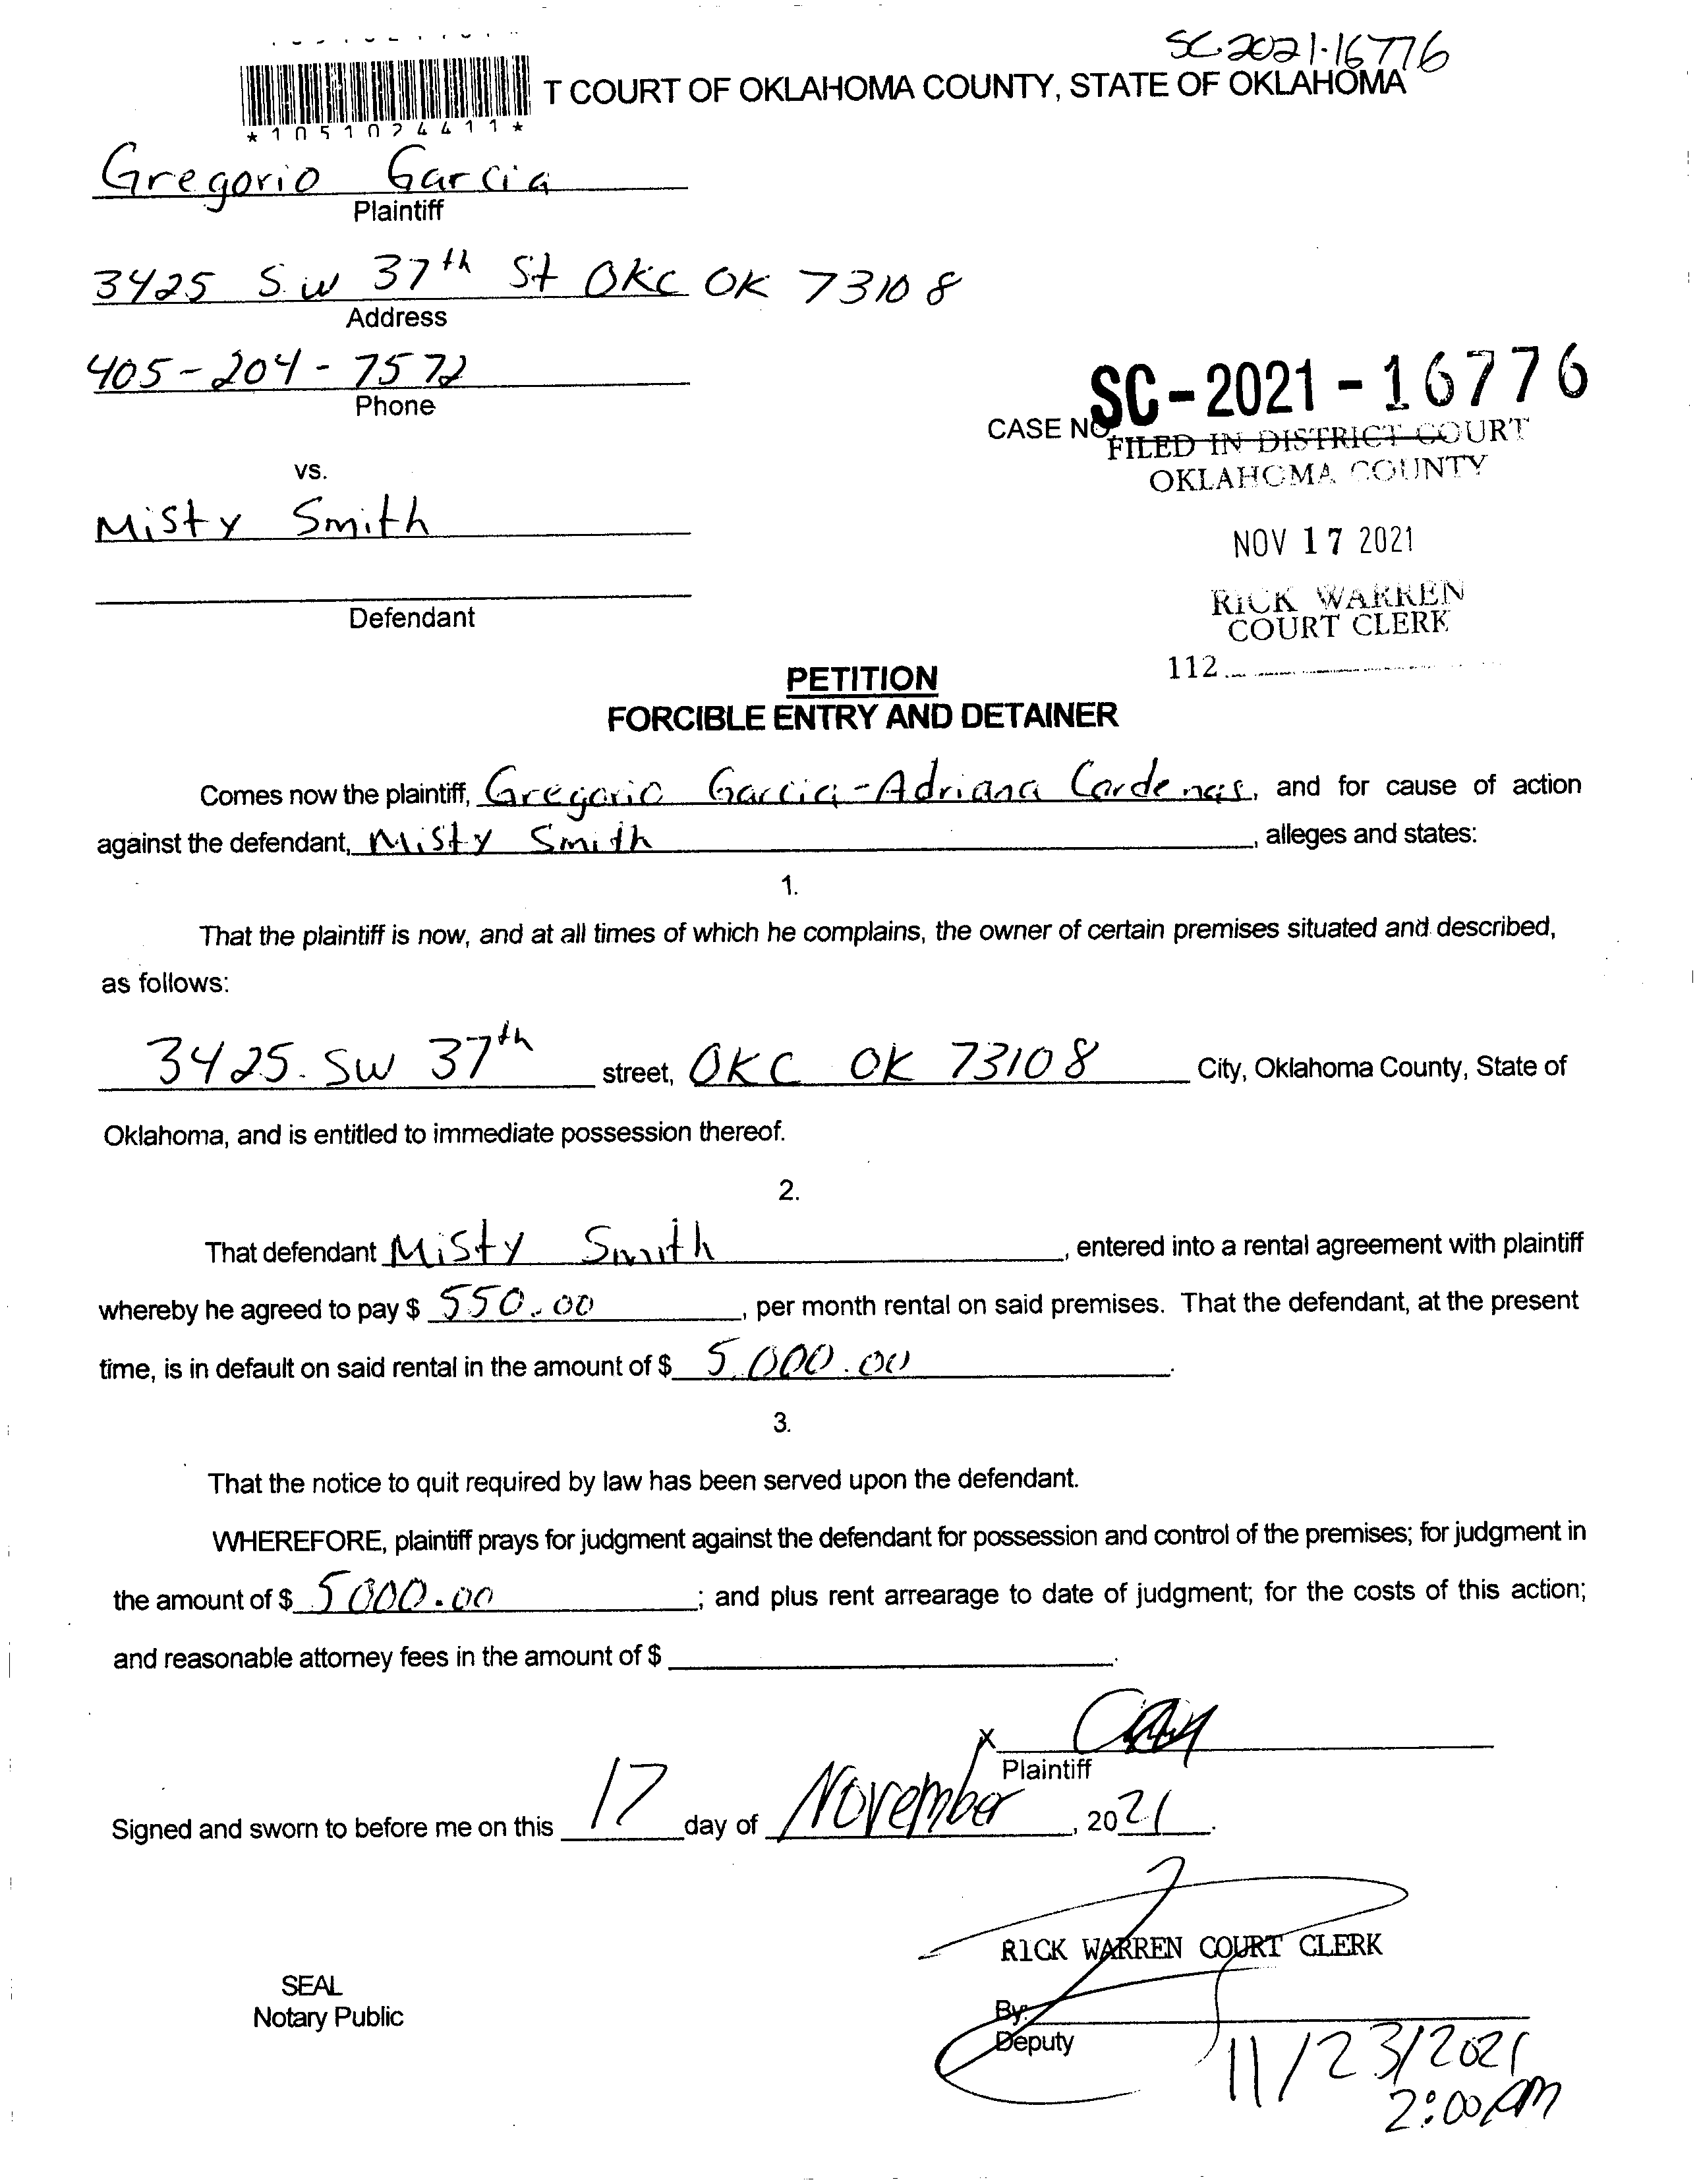 SC-2021-16776
T COURT OF OKLAHOMA COUNTY, STATE OF OKLAHOMA
*1051024411*
Gregorio Garcia
Plaintiff
3425 SW 37th St OKC OK 73108
Address
405-204-7572
Phone
SC-2021-16776
CASE NO.
FILED IN DISTRICT COURT
OKLAHOMA COUNTY
vs.
Misty Smith
NOV 17 2021
RICK WARREN
COURT CLERK
Defendant
112
PETITION
FORCIBLE ENTRY AND DETAINER
Comes now the plaintiff, Gregorio Garcia-Adriana Cardenas, and for cause of action
against the defendant, Misty Smith, alleges and states:
1.
That the plaintiff is now, and at all times of which he complains, the owner of certain premises situated and described,
as follows:
3425 SW 37th street, OKC OK 73108 City, Oklahoma County, State of
Oklahoma, and is entitled to immediate possession thereof.
2.
That defendant Misty Smith, entered into a rental agreement with plaintiff
whereby he agreed to pay $ 550.00, per month rental on said premises. That the defendant, at the present
time, is in default on said rental in the amount of $ 5,000.00.
3.
That the notice to quit required by law has been served upon the defendant.
WHEREFORE, plaintiff prays for judgment against the defendant for possession and control of the premises; for judgment in
the amount of $ 5000.00; and plus rent arrearage to date of judgment; for the costs of this action;
and reasonable attorney fees in the amount of $ .
X
Plaintiff
Signed and sworn to before me on this 17 day of November, 2021.
RICK WARREN COURT CLERK
SEAL
Notary Public
By:
Deputy
11/23/2021
2:00 PM